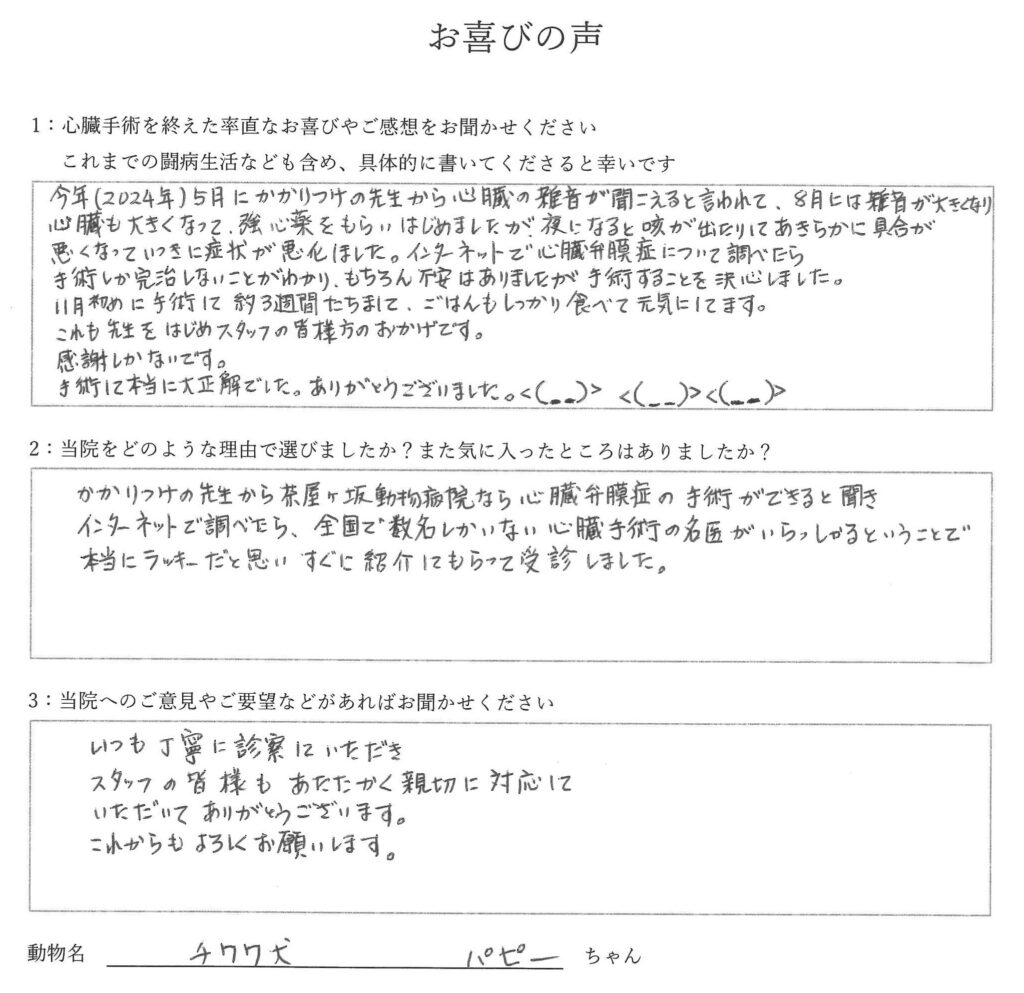 お喜びの声
1：心臓手術を終えた率直なお喜びやご感想をお聞かせください
これまでの闘病生活なども含め、具体的に書いてくださると幸いです
今年(2024年)5月にかかりつけの先生から心臓の雑音が聞こえると言われて、8月には雑音が大きくなり
心臓も大きくなって、強心薬をもらいはじめましたが、夜になると咳が出たりしてあきらかに具合が
悪くなっていっきに症状が悪化しました。インターネットで心臓弁膜症について調べたら
手術しか完治しないことがわかり、もちろん不安はありましたが手術することを決心しました。
11月初めに手術して約3週間たちまして、ごはんもしっかり食べて元気にしてます。
これも先生をはじめスタッフの皆様方のおかげです。
感謝しかないです。
手術して本当に大正解でした。ありがとうございました。<(__)> <(__)> <(__)>
2：当院をどのような理由で選びましたか？また気に入ったところはありましたか？
かかりつけの先生から茶屋ヶ坂動物病院なら心臓弁膜症の手術ができると聞き
インターネットで調べたら、全国で数名しかいない心臓手術の名医がいらっしゃるということで
本当にラッキーだと思いすぐに紹介してもらって受診しました。
3：当院へのご意見やご要望などがあればお聞かせください
いつも丁寧に診察していただき
スタッフの皆様もあたたかく親切に対応して
いただいてありがとうございます。
これからもよろしくお願いします。
動物名 チワワ犬 パピー ちゃん